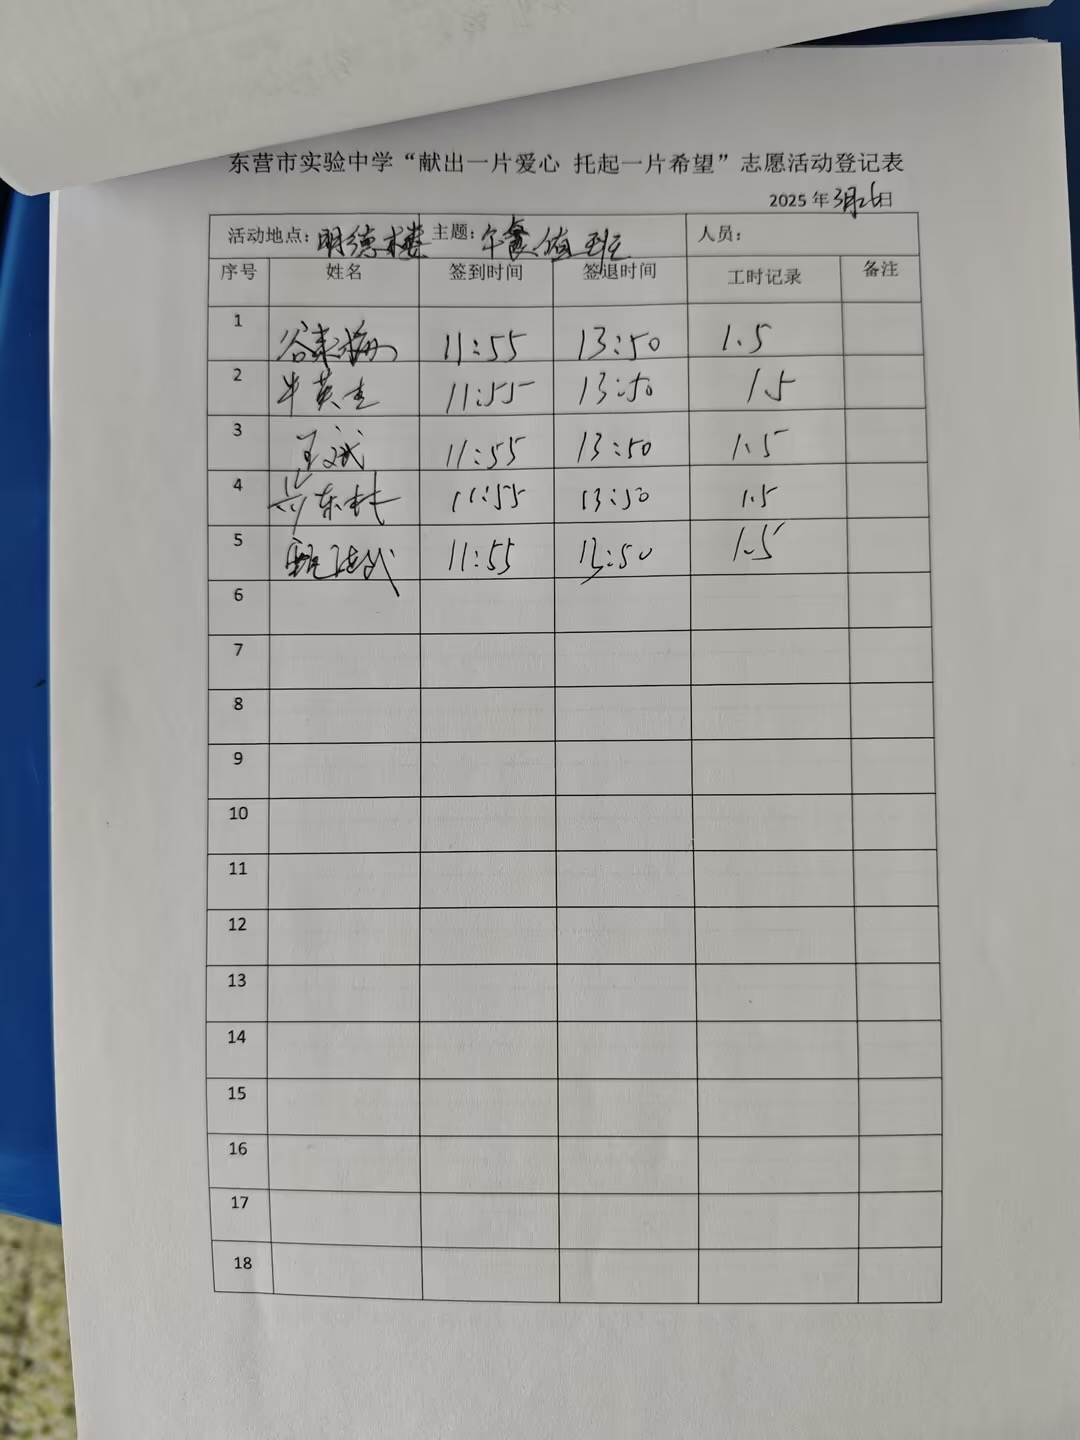 东营市实验中学“献出一片爱心 托起一片希望”志愿活动登记表
2025年3月26日
活动地点：明德楼 主题：午餐值班 人员：
序号 姓名 签到时间 签退时间 工时记录 备注
1 11:55 13:50 1.5
2 牛英杰 11:55 13:50 1.5
3 王斌 11:55 13:50 1.5
4 11:55 13:50 1.5
5 11:55 13:50 1.5
6
7
8
9
10
11
12
13
14
15
16
17
18